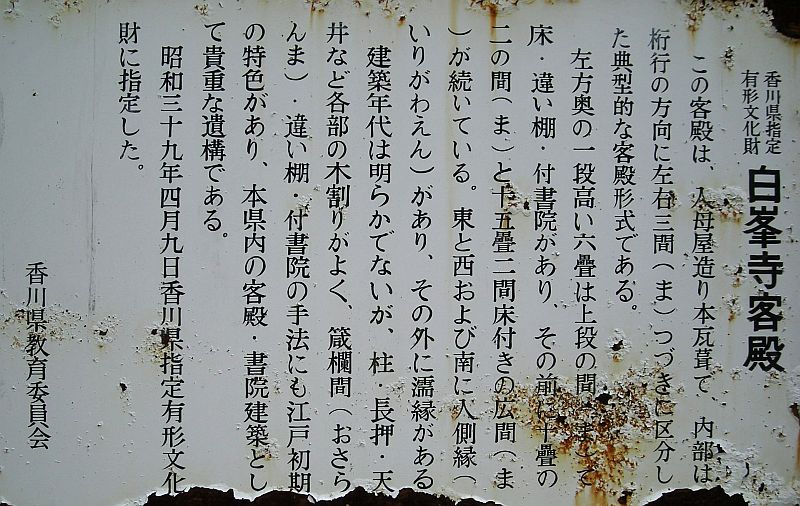 香川県指定
有形文化財
白峯寺客殿
この客殿は、入母屋造り本瓦葺で 内部は
桁行の方向に左右三間(ま)つづきに区分し
た典型的な客殿形式である。
左方奥の一段高い六疊は上段の間(ま)で
床・違い棚・付書院があり、その前に十疊の
二の間(ま)と十五疊二間床付きの広間(ま
)が続いている。東と西および南に入側縁(
いりがわえん)があり、その外に濡縁がある
建築年代は明らかでないが、柱・長押・天
井など各部の木割りがよく、箴欄間(おさら
んま)・違い棚・付書院の手法にも江戸初期
の特色があり、本県内の客殿・書院建築とし
て貴重な遺構である。
昭和三十九年四月九日香川県指定有形文化
財に指定した。
香川県教育委員会